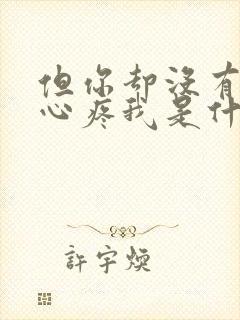 但你却没有
心疼我是什
許宇煥